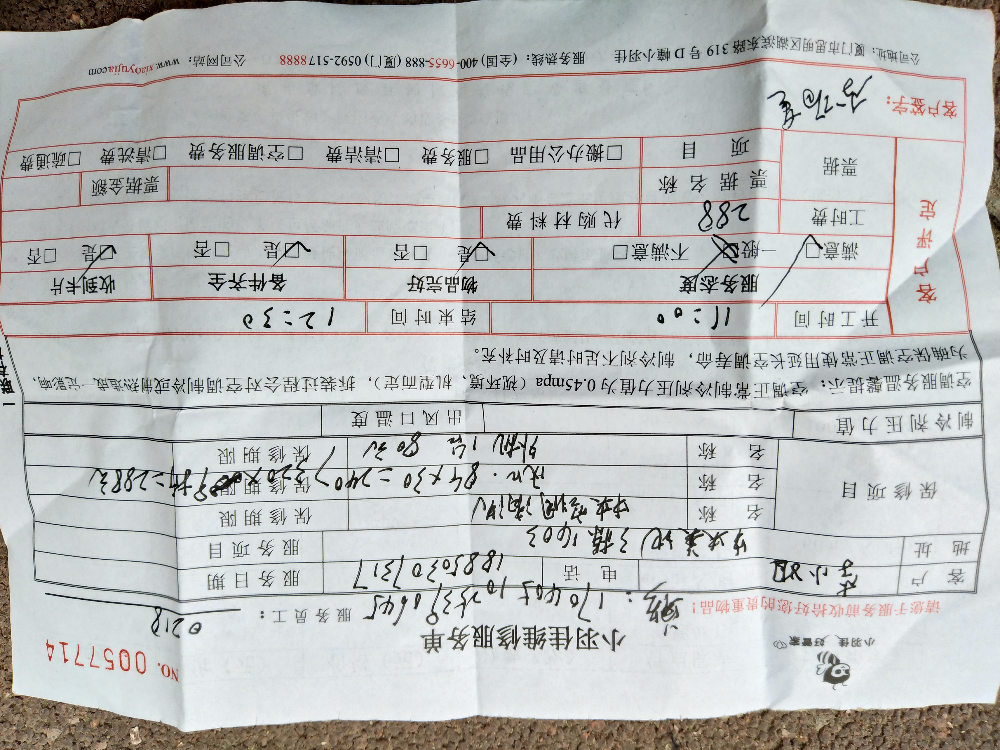 小羽佳 好管家
NO. 0057714
小羽佳维修服务单
服务员工: 0218
请您于服务前收拾好您的贵重物品!
客户 李小姐 电话 18850301317 服务日期
地址 3栋1603 服务项目
保修项目 名称 中央空调清洗 保修期限
名称 84×30=240 保修期限
名称 外机1台 80元 保修期限
制冷剂压力值 出风口温度
空调服务温馨提示: 空调正常制冷剂压力值为0.45mpa(视环境、机型而定), 拆装过程会对空调制冷或制热造成一定影响,
为确保空调正常使用延长空调寿命, 制冷剂不足时请及时补充。
开工时间 11:00 结束时间 12:30
客户评定
服务态度 物品完好 备件齐全 收到卡片
满意□ 一般□ 不满意□ 是□ 否□ 是□ 否□ 是□ 否□
工时费 288 代购材料费
票据 票据名称 票据金额
项目 □搬办公用品 □服务费 □清洁费 □空调服务费 □清洗费 □疏通费
客户签字:
公司地址: 厦门市思明区湖滨东路319号D幢小羽佳 服务热线: (全国)400-6655-888 (厦门)0592-5178888 公司网站: www.xiaoyujia.com